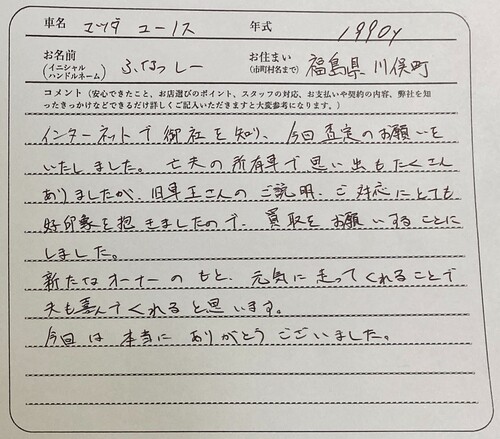 車名 マツダ ユーノス 年式 1990y
お名前 (イニシャル ハンドルネーム) ふなっしー お住まい (市町村名まで) 福島県川俣町
コメント(安心できたこと、お店選びのポイント、スタッフの対応、お支払いや契約の内容、弊社を知
ったきっかけなどできるだけ詳しくご記入いただきますと大変参考になります。)
インターネットで御社を知り、今回査定のお願いを
いたしました。亡夫の所有車で思い出もたくさん
ありましたが、旧車王さんのご説明、ご対応にとても
好印象を抱きましたので、買取をお願いすることに
しました。
新たなオーナーのもと、元気に走ってくれることで
夫も喜んでくれると思います。
今回は本当にありがとうございました。